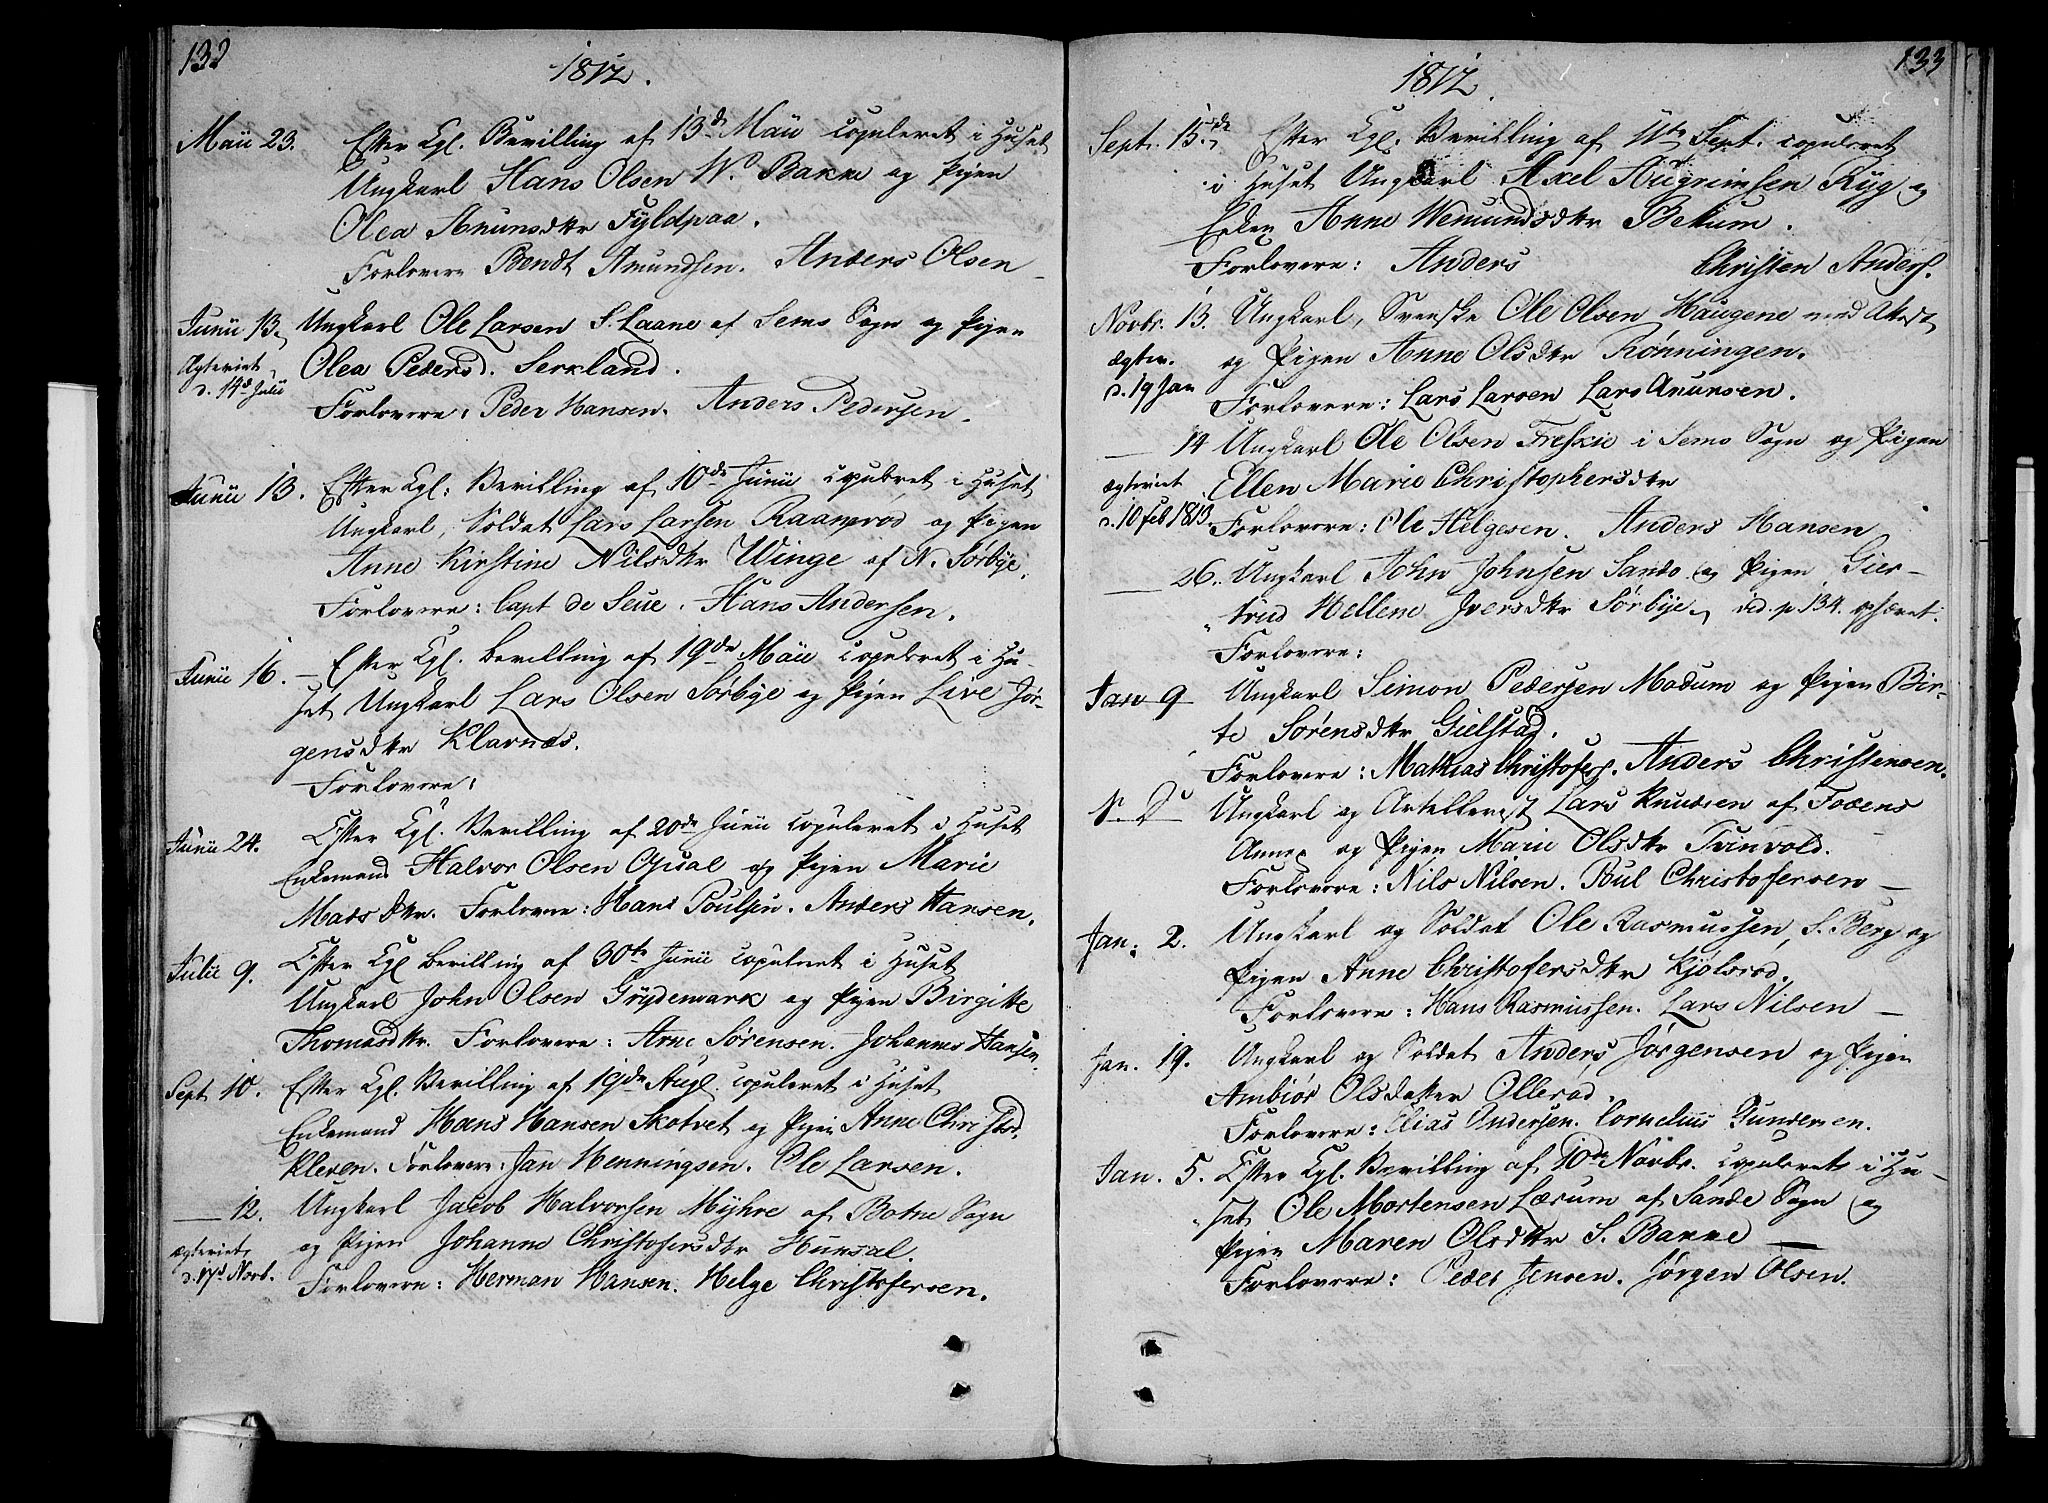 132
1812.
Maii 23. Efter Kgl. Bevilling af 13de Maii copuleret i Huset
Ungkarl Hans Olsen W. Bakke og Pigen
Olea Anunsdtr Fyldpaa.
Forlovere Bendt Amundsen. Anders Olsen
Junii 13. Ungkarl Ole Larsen S. Laane af Sems Sogn og Pigen
Ægteviet Olea Pedersd. Serkland.
d. 14de Julii Forlovere: Peder Hansen. Anders Pedersen.
Junii 13. Efter Kgl. Bevilling af 10de Junii copuleret i Huset
Ungkarl, Soldat Lars Larsen Raamrod og Pigen
Anne Kirstine Nilsdtr Winge af N. Sørbye.
Forlovere: Capt de Seue. Hans Andersen.
Junii 16. Efter Kgl. Bevilling af 19de Maii copuleret i Hu-
set Ungkarl Lars Olsen Sørbye og Pigen Live Jør-
gensdtr Klavnæs.
Forlovere:
Junii 24. Efter Kgl. Bevilling af 20de Junii copuleret i Huset
Enkemand Halvor Olsen Opsal og Pigen Marie
Madsdtr. Forlovere: Hans Poulsen. Anders Hansen.
Julii 9. Efter Kgl Bevilling af 30te Junii copuleret i Huset
Ungkarl John Olsen Grydemark og Pigen Birgitte
Thomasdtr. Forlovere: Arne Sørensen. Johannes Hansen
Sept 10. Efter Kgl. Bevilling af 19de Augl. copuleret i Huset
Enkemand Hans Hansen Skotvet og Pigen Anne Christsd.
Kleven. Forlovere: Jan Henningsen. Ole Larsen.
— 12. Ungkarl Jacob Halvorsen Myhre af Botne Sogn
ægteviet og Pigen Johanne Christofersdtr Hunsal.
d. 17d Novb. Forlovere: Herman Hansen. Helge Christofersen.
133
1812.
Sept. 15de Efter Kgl. Bevilling af 11te Sept. copuleret
i Huset Ungkarl Axel Augrimsen Ryg og
Enken Anne Wemundsdtr Bekum.
Forlovere: Anders Christen Anders.
Novbr. 13. Ungkarl, Svenske Ole Olsen Haugene med Attest
ægtev. og Pigen Anne Olsdtr Rønningen.
d. 19 Jan Forlovere: Lars Larsen Lars Anunsen.
— 14 Ungkarl Ole Olsen Freskie i Sems Sogn og Pigen
ægteviet Ellen Marie Christophersdtr
d. 10 Feb 1813. Forlovere: Ole Helgesen. Anders Hansen
— 26. Ungkarl John Johnsen Sando og Pigen Gier-
trud Hellene Iversdtr Sørbye, vid. p 134. ophævet.
Forlovere:
Jan 9 Ungkarl Simon Pedersen Modum og Pigen Bir-
te Sørensdtr Gielstad.
Forlovere: Mathias Christofers. Anders Christensen.
S. D. Ungkarl og Artillerist Lars Knudsen af Fodens
Annex og Pigen Marie Olsdtr Tvinvold.
Forlovere: Nils Nilsen. Poul Christofersen —
Jan: 2. Ungkarl og Soldat Ole Rasmussen S. Berg og
Pigen Anne Christofersdtr Kjølsrød.
Forlovere: Hans Rasmussen. Lars Nilsen —
Jan. 19. Ungkarl og Soldat Anders Jørgensen og Pigen
Ambiør Olsdatter Ollerød.
Forlovere: Elias Andersen. Cornelius Gundersen.
Jan. 5. Efter Kgl. Bevilling af 10de Novbr. copuleret i Hu-
set Ole Mortensen Lærum af Sande Sogn og
Pigen Maren Olsdtr S. Bakke —
Forlovere: Peder Jensen. Jørgen Olsen.